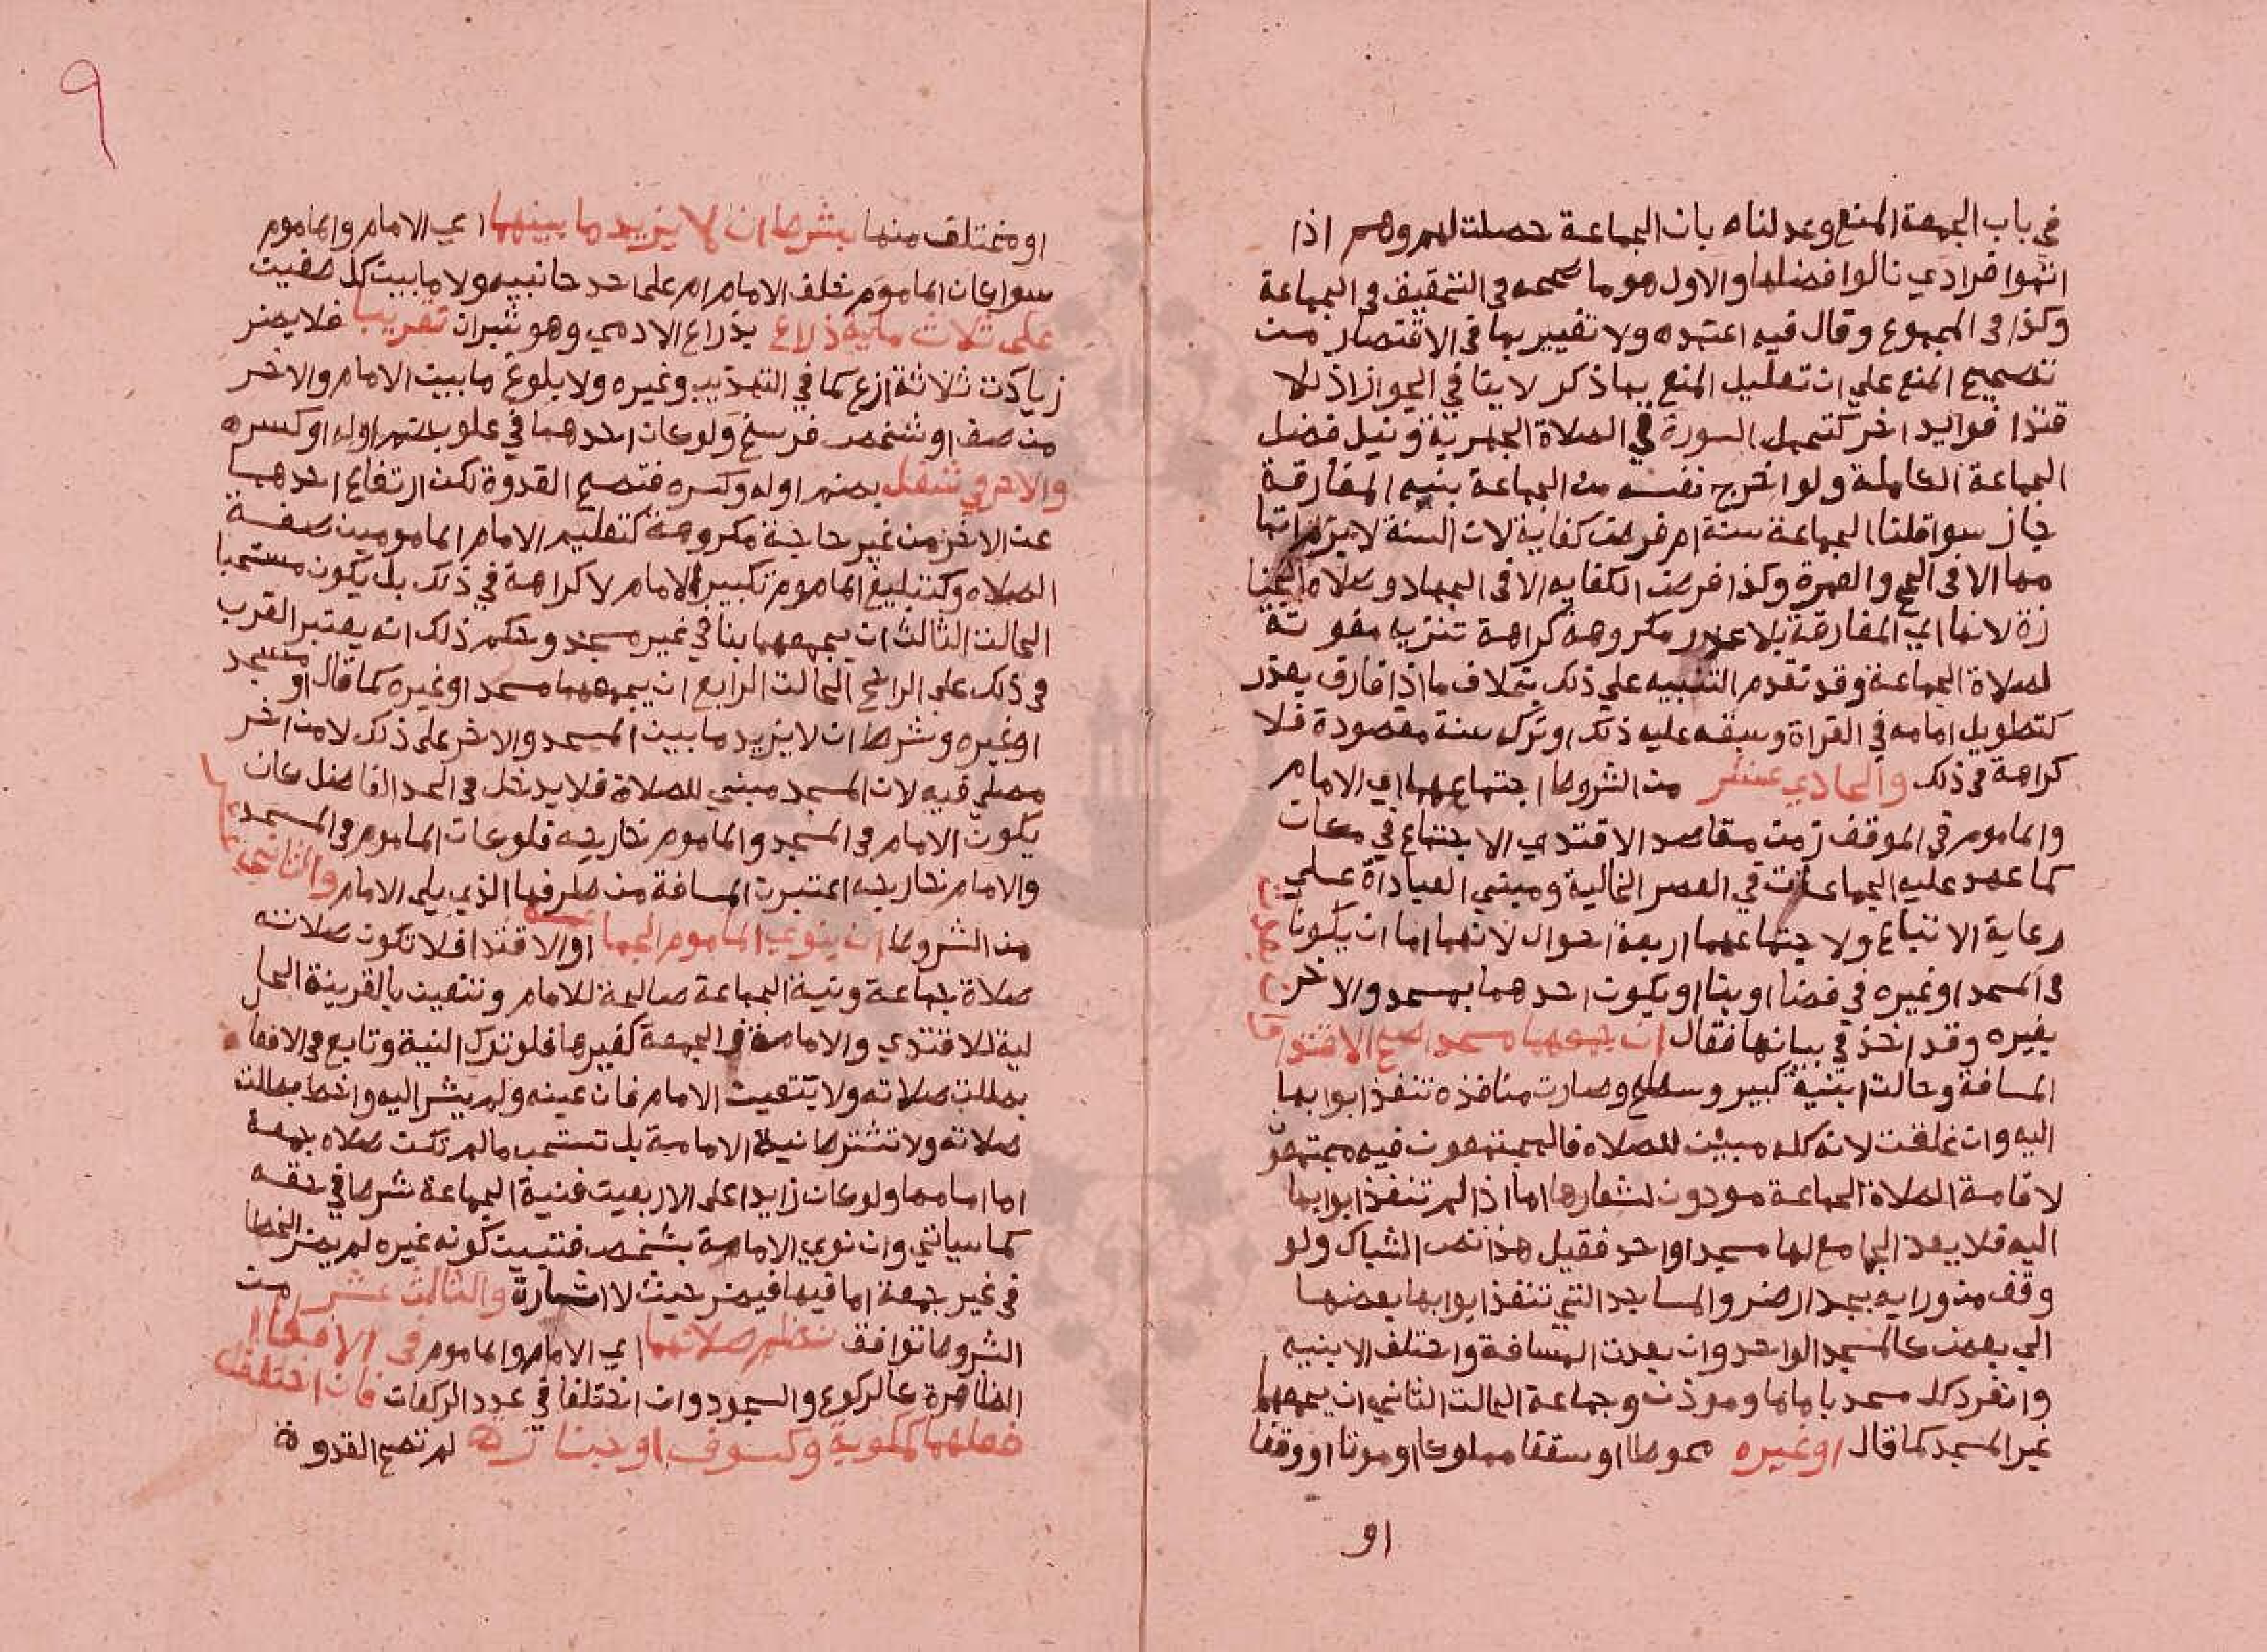 في باب الجمعة المنع وعدلناه بان الجماعة حصلت لهم وهم اذا
اتموا فرادي نالوا فضلها والاول هو ما صححه في التحقيق في الجماعة
وكذا في المجموع وقال فيه اعتمده ولا تغيير بما في الاقتصار من
تصحيح المنع علي ان تعليل المنع بما ذكر لا ينافي الجواز اذ للا
قتدا فوايد اخر كتحمل السورة في الصلاة الجهرية ونيل فضل
الجماعة الكاملة ولو اخرج نفسه من الجماعة بنية المفارقة
جاز سوا قلنا الجماعة سنة ام فرض كفاية لان السنة لا يلزم اتما
مها الا في الحج والعمرة وكذا فرض الكفايه الا في الجهاد وصلاه الجنا
زة لانها اي المفارقة بلا عذر مكروهة كراهة تنزيه مفوتة
لصلاة الجماعة وقد تقدم التنبيه علي ذلك بخلاف ما اذا فارق بعذر
كتطويل امامه في القراة وسبقه عليه ذلك او ترك سنة مقصودة فلا
كراهة في ذلك والحادي عشر من الشروط اجتماعهما اي الامام
والماموم في الموقف ز من مقاصد الاقتدي الاجتماع في مكان
كما عهد عليه الجماعات في العصر الخالية ومبني العباداة علي
رعاية الاتباع ولاجتماعهما اربعة احوال لانهما اما ان يكونا
في المسجد او غيره في فضا او بنا او يكون احدهما بمسجد والاخر
بغيره وقد اخذ في بيانها فقال ان جمعهما مسجد صح الاقتدا
المسافة وحالت ابنية كبير وسطح وصارت منافذه تنفذ ابوابها
اليه وان غلقت لانه كله مبني للصلاه فالمجتمعون فيه مجتمعون
لاقامة الصلاة الجماعة مودون لشعارها اما اذا لم تنفذ ابوابها
اليه فلا يعد الجامع لها مسجدا واحد فقيل هذا نص الشباك ولو
وقف من ورايه بجدار ضر والمساجد التي تنفذ ابوابها بعضها
الي بعض كالمسجد الواحد وان بعدت المسافة واختلف الابنيه
وانفرد كل مسجد باماما وموذن وجماعة الحالت الثاني ان يجمعهما
غير المسجد كما قال او غيره محوطا او سقفا مملوكا او موتا او وقفا
او
٩
او مختلف منها بشرط ان لا يزيد ما بينهما اي الامام والماموم
سوا كان الماموم خلف الامام ام على احد جانبيه ولا ما بين كل صفين
على ثلاث ماية ذراع بذراع الادمي وهو شبران تقريبا فلا يضر
زيادت ثلاثة ازع كما في التهذيب وغيره ولا بلوغ ما بين الامام والاخر
من صف او شخص فرسخ ولو كان احدهما في علو بضم اوله او كسره
والاخر في سفل بضم اوله وكسره فتصح القدوة لكن ارتفاع احدهما
عن الاخر من غير حاجة مكروهة كتعليم الامام المامومين صفة
الصلاه وكتبليغ الماموم تكبير الامام لا كراهة في ذلك بل يكون مستحبا
الحالت الثالث ان يجمعهما بنا في غير مسجد وحكم ذلك انه يعتبر القرب
في ذلك علي الراجح الحالت الرابع ان يجمعهما مسجد او غيره كما قال او مسجد
او غيره وشرط ان لا يزيد ما بين المسجد والاخر على ذلك لا من اخر
مصلي فيه لان المسجد مبني للصلاة فلا يدخل في الحد الفاضل كان
يكون الامام في المسجد والماموم خارجه فلو كان الماموم في المسجد
والامام خارجه اعتبرت المسافة من طرفها الذي يلي الامام والثاني عشر
من الشروط ان ينوي الماموم الجماعة او الاقتدا فلا تكون صلاته
صلاة جماعة ونية الجماعة صالحة للامام وتتعين بالقرينة الحا
لية للاقتدي والامامة في الجمعة كغيرها فلو ترك النية وتابع في الافعا
بطلت صلاته ولا يتعين الامام فان عينه ولم يشر اليه واخطا بطلت
صلاته ولا تشترط نية الامامة بل تستحب ما لم تكن صلاه جمعة
اما امامها ولو كان زايدا على الاربعين فنية الجماعة شرط في حقه
كما سياتي وان نوي الامامة بشخص فتبين كونه غيره لم يضر الخطا
في غير جمعة اما فيها فيضر حيث لا اشارة والثالث عشر من
الشروط توافق نظم صلاتهما اي الامام والماموم في الافعال
الظاهرة كالركوع والسجود وان اختلفا في عدد الركعات فان اختلف
فعلهما كمكتوبة وكسوف او جنازة لم تصح القدوة